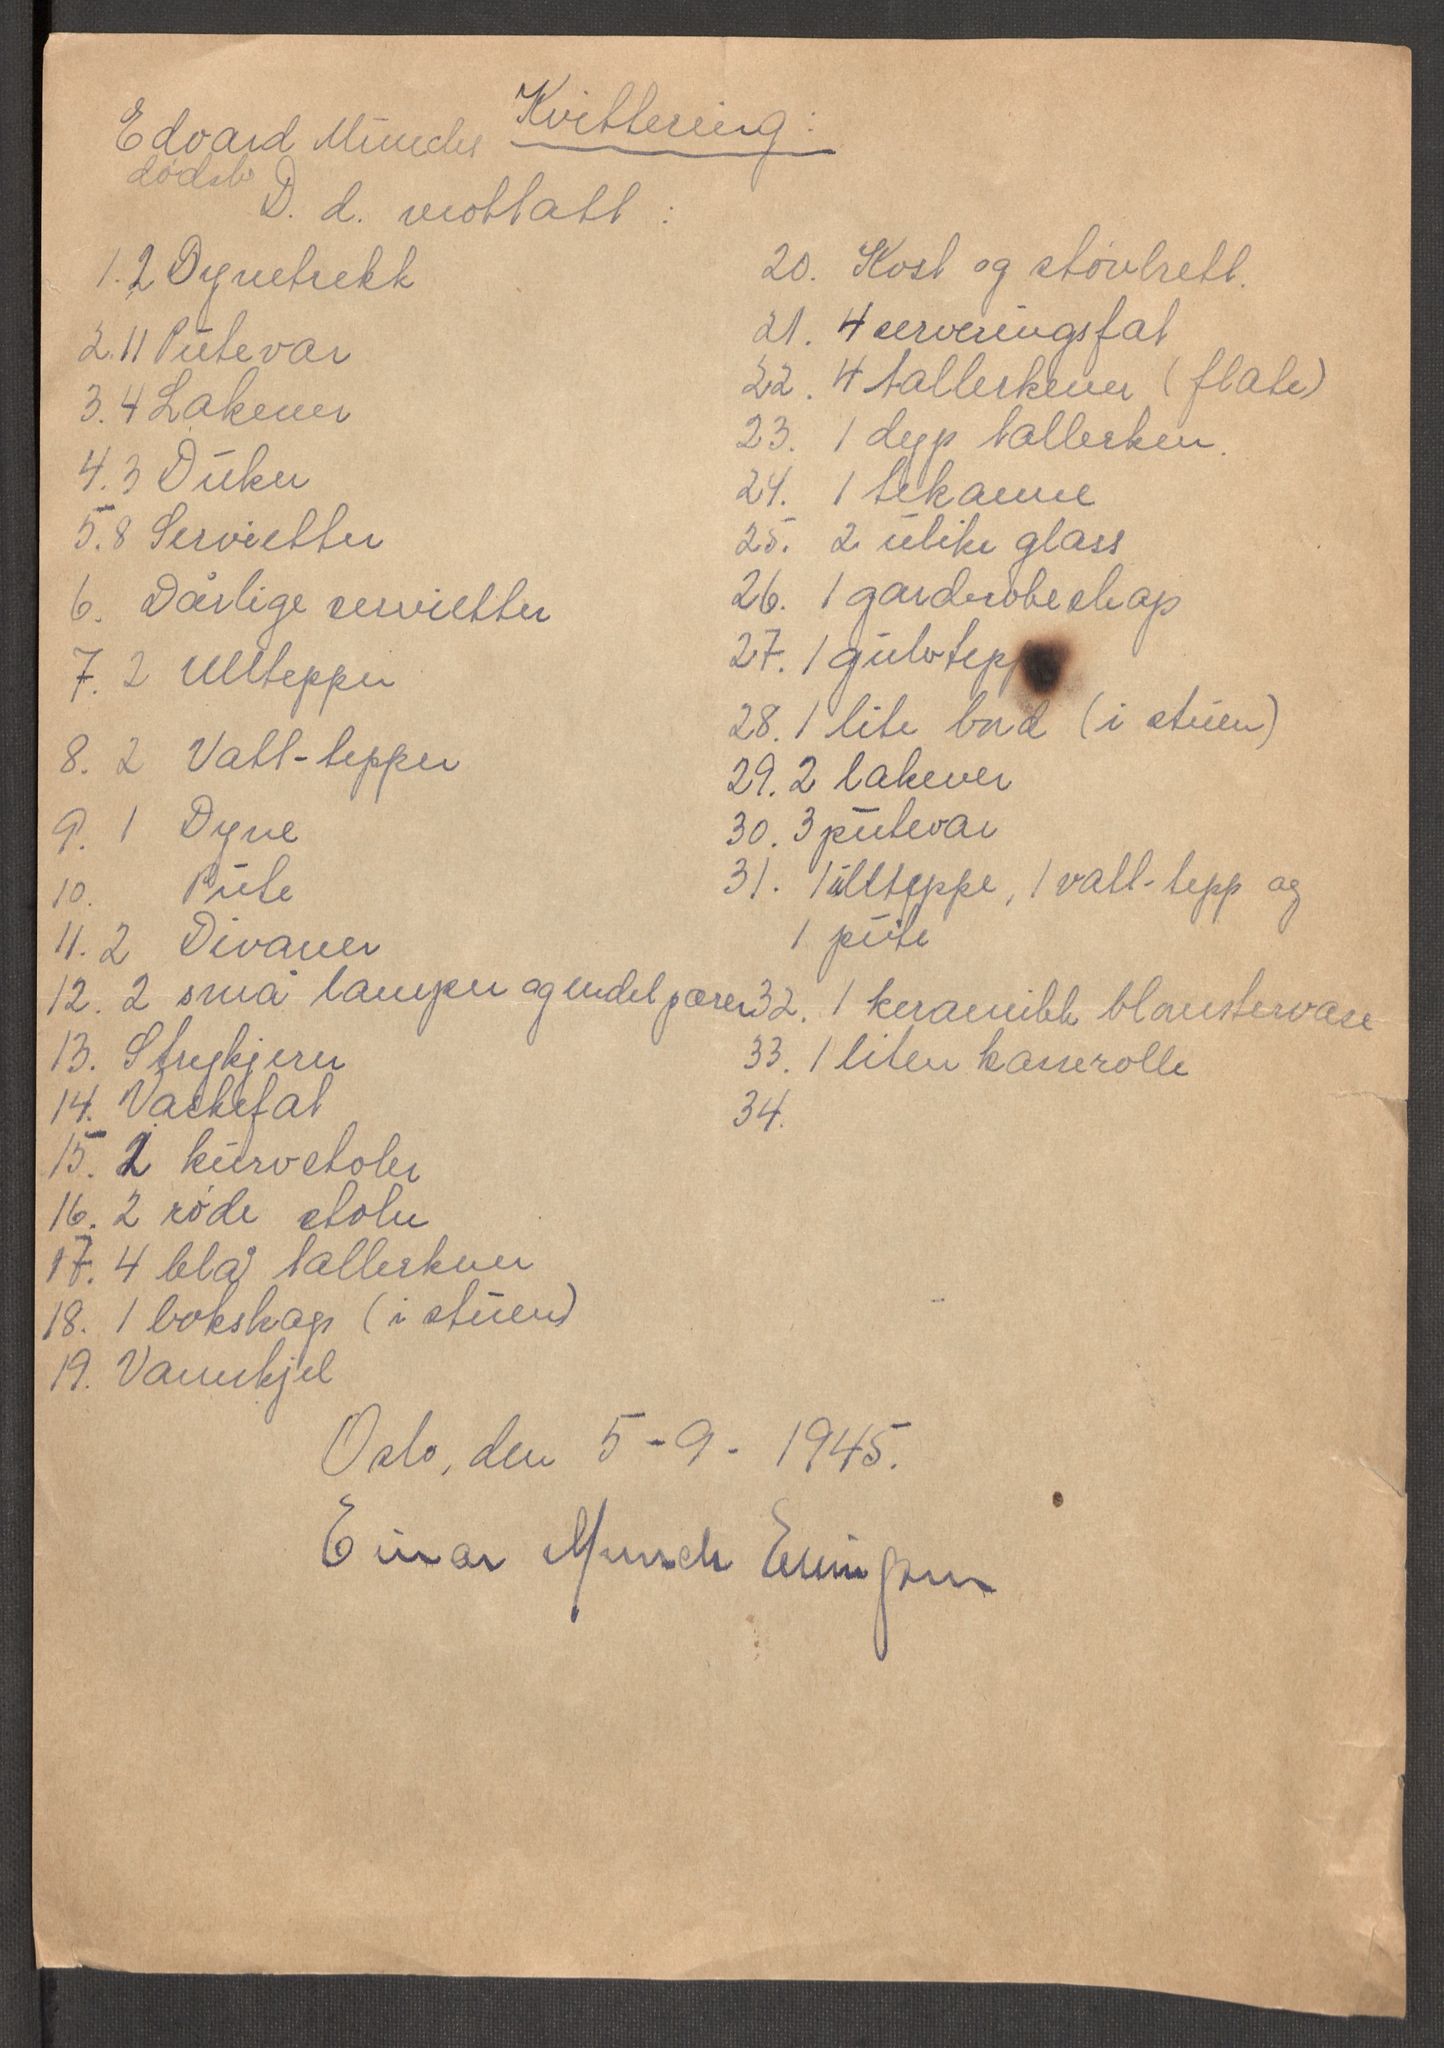 Kvittering:
Edvard Munchs
dødsbo
D. d. mottatt:
1. 2 Dynetrekk
2. 11 Putevar
3. 4 Lakener
4. 3 Duker
5. 8 Servietter
6. Dårlige servietter
7. 2 Ulltepper
8. 2 Vatt-tepper
9. 1 Dyne
10. Pute
11. 2 Divaner
12. 2 små lamper og endel pærer
13. Strykjern
14. Vaskefat
15. 2 kurvstoler
16. 2 røde stoler
17. 4 blå tallerkner
18. 1 bokskap (i stuen)
19. Vannkjel
20. Kost og støvbrett.
21. 4 serveringsfat
22. 4 tallerkener (flate)
23. 1 dyp tallerken.
24. 1 tekanne
25. 2 ulike glass
26. 1 garderobeskap
27. 1 gulvtepp
28. 1 lite bord (i stuen)
29. 2 lakener
30. 3 putevar
31. 1 ullteppe, 1 vatt-tepp og
1 pute
32. 1 keramikk blomstervase
33. 1 liten kasserolle
34.
Oslo, den 5-9-1945.
Einar Munch Ellingsen